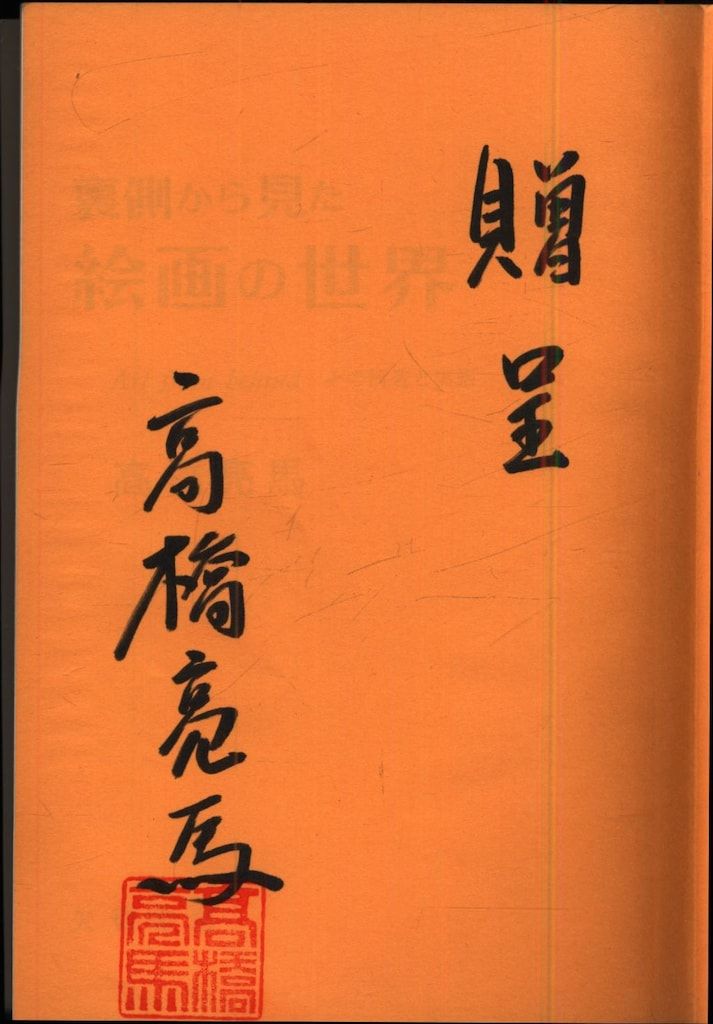 贈呈
高橋亮馬
高橋
亮馬
裏側から見た
絵画の世界